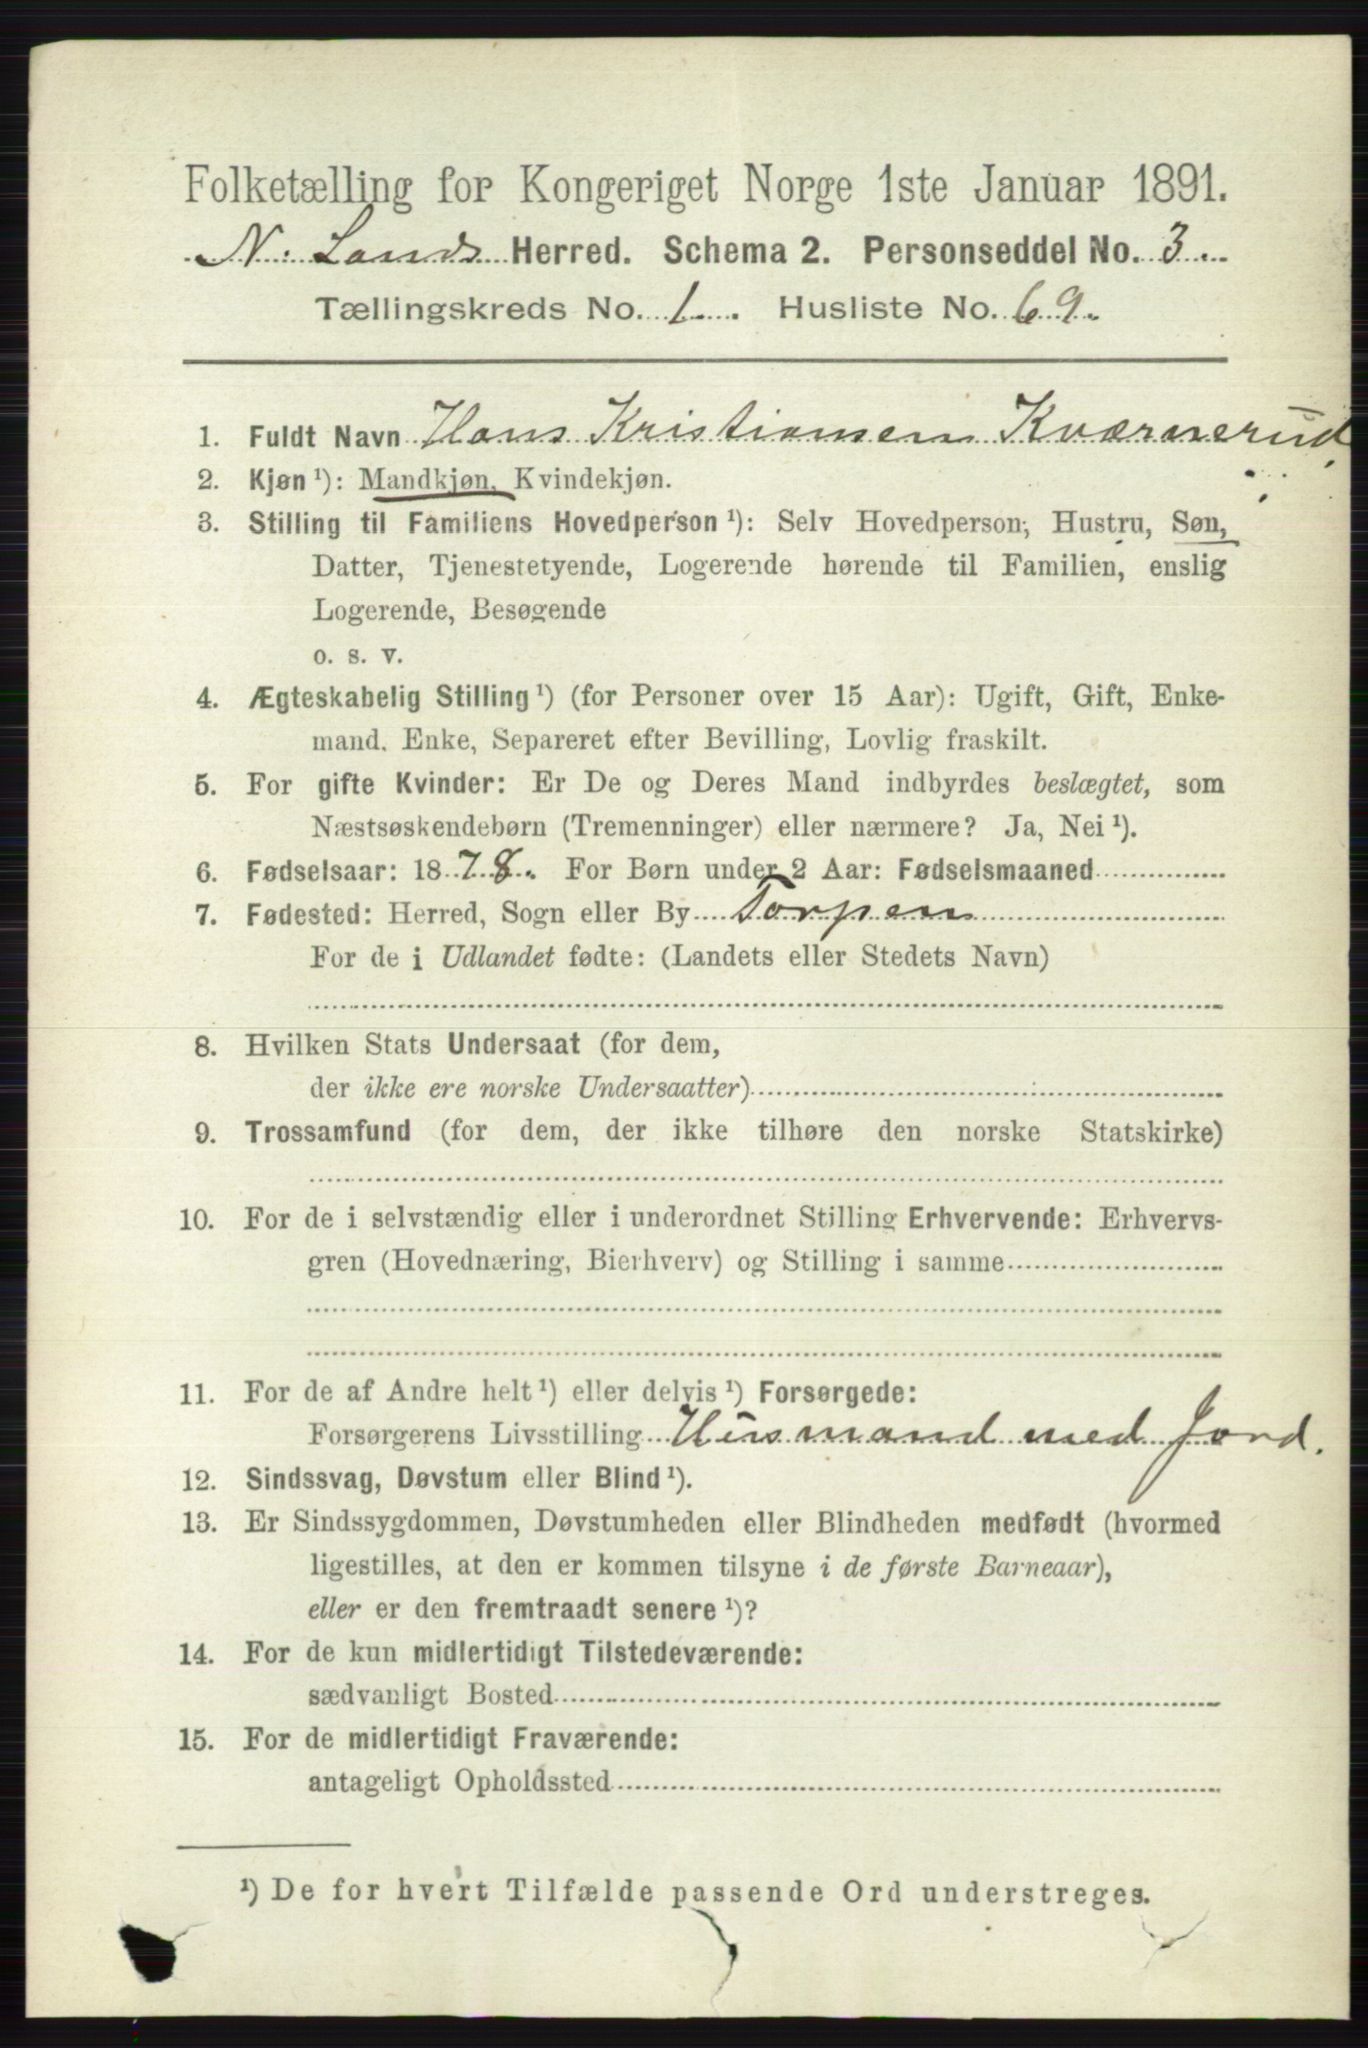 Folketælling for Kongeriget Norge 1ste Januar 1891.
N. Lands Herred. Schema 2. Personseddel No. 3.
Tællingskreds No. 1. Husliste No. 69.
1. Fuldt Navn Hans Kristiansen Kværnerud
2. Kjøn ¹): Mandkjøn, Kvindekjøn.
3. Stilling til Familiens Hovedperson ¹): Selv Hovedperson, Hustru, Søn,
Datter, Tjenestetyende, Logerende hørende til Familien, enslig
Logerende, Besøgende
o. s. v.
4. Ægteskabelig Stilling ¹) (for Personer over 15 Aar): Ugift, Gift, Enke-
mand, Enke, Separeret efter Bevilling, Lovlig fraskilt.
5. For gifte Kvinder: Er De og Deres Mand indbyrdes beslægtet, som
Næstsøskendebørn (Tremenninger) eller nærmere? Ja, Nei ¹).
6. Fødselsaar: 1878. For Børn under 2 Aar: Fødselsmaaned
7. Fødested: Herred, Sogn eller By Torpen
For de i Udlandet fødte: (Landets eller Stedets Navn)
8. Hvilken Stats Undersaat (for dem,
der ikke ere norske Undersaatter)
9. Trossamfund (for dem, der ikke tilhøre den norske Statskirke)
10. For de i selvstændig eller i underordnet Stilling Erhvervende: Erhvervs-
gren (Hovednæring, Bierhverv) og Stilling i samme
11. For de af Andre helt ¹) eller delvis ¹) Forsørgede:
Forsørgerens Livsstilling Husmand med Jord.
12. Sindssvag, Døvstum eller Blind ¹).
13. Er Sindssygdommen, Døvstumheden eller Blindheden medfødt (hvormed
ligestilles, at den er kommen tilsyne i de første Barneaar),
eller er den fremtraadt senere ¹)?
14. For de kun midlertidigt Tilstedeværende:
sædvanligt Bosted
15. For de midlertidigt Fraværende:
antageligt Opholdssted
¹) De for hvert Tilfælde passende Ord understreges.